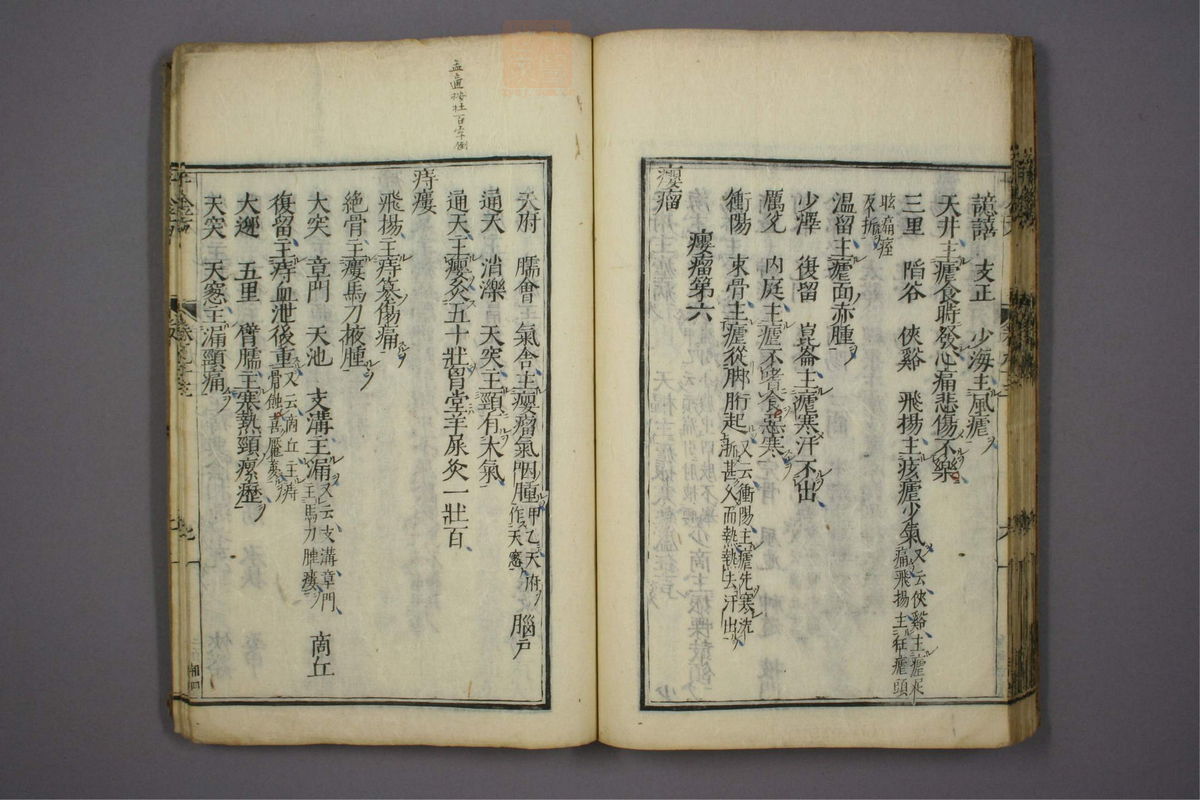 譩譆　支正　少海主風瘧
天井主瘧食時發心痛悲傷不樂
三里　陷谷　俠谿　飛揚主痎瘧少氣又云俠谿主瘧足痛飛揚主狂瘧頭
眩痛痙反折
溫留主瘧面赤腫
少澤　復留　崑崙主瘧寒汗不出
厲兌　內庭主瘧不嗜食惡寒
衝陽　束骨主瘧從脚胻起又云衝陽主瘧先寒洗淅甚久而熱熱去汗出
癭瘤第六
癭瘤
天府　臑會　氣舍主癭瘤氣咽腫甲乙天府作天窻　腦戶
通天　消濼　天突主頸有大氣
通天主癭灸五十壯胃堂羊屎灸一壯百
痔瘻
飛揚主痔篡傷痛
絕骨主瘻馬刀掖腫
大突　章門　天池　支溝主漏又云支溝章門主馬刀腫瘻　商丘
復留主痔血泄後重又云商丘主痔骨蝕喜魘夢
大迎　五里　臂臑主寒熱頸瘰癧
天突　天窻主漏頸痛